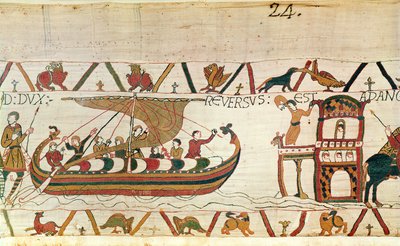 24.
D: DUX:- REVERSUS: EST ADANG